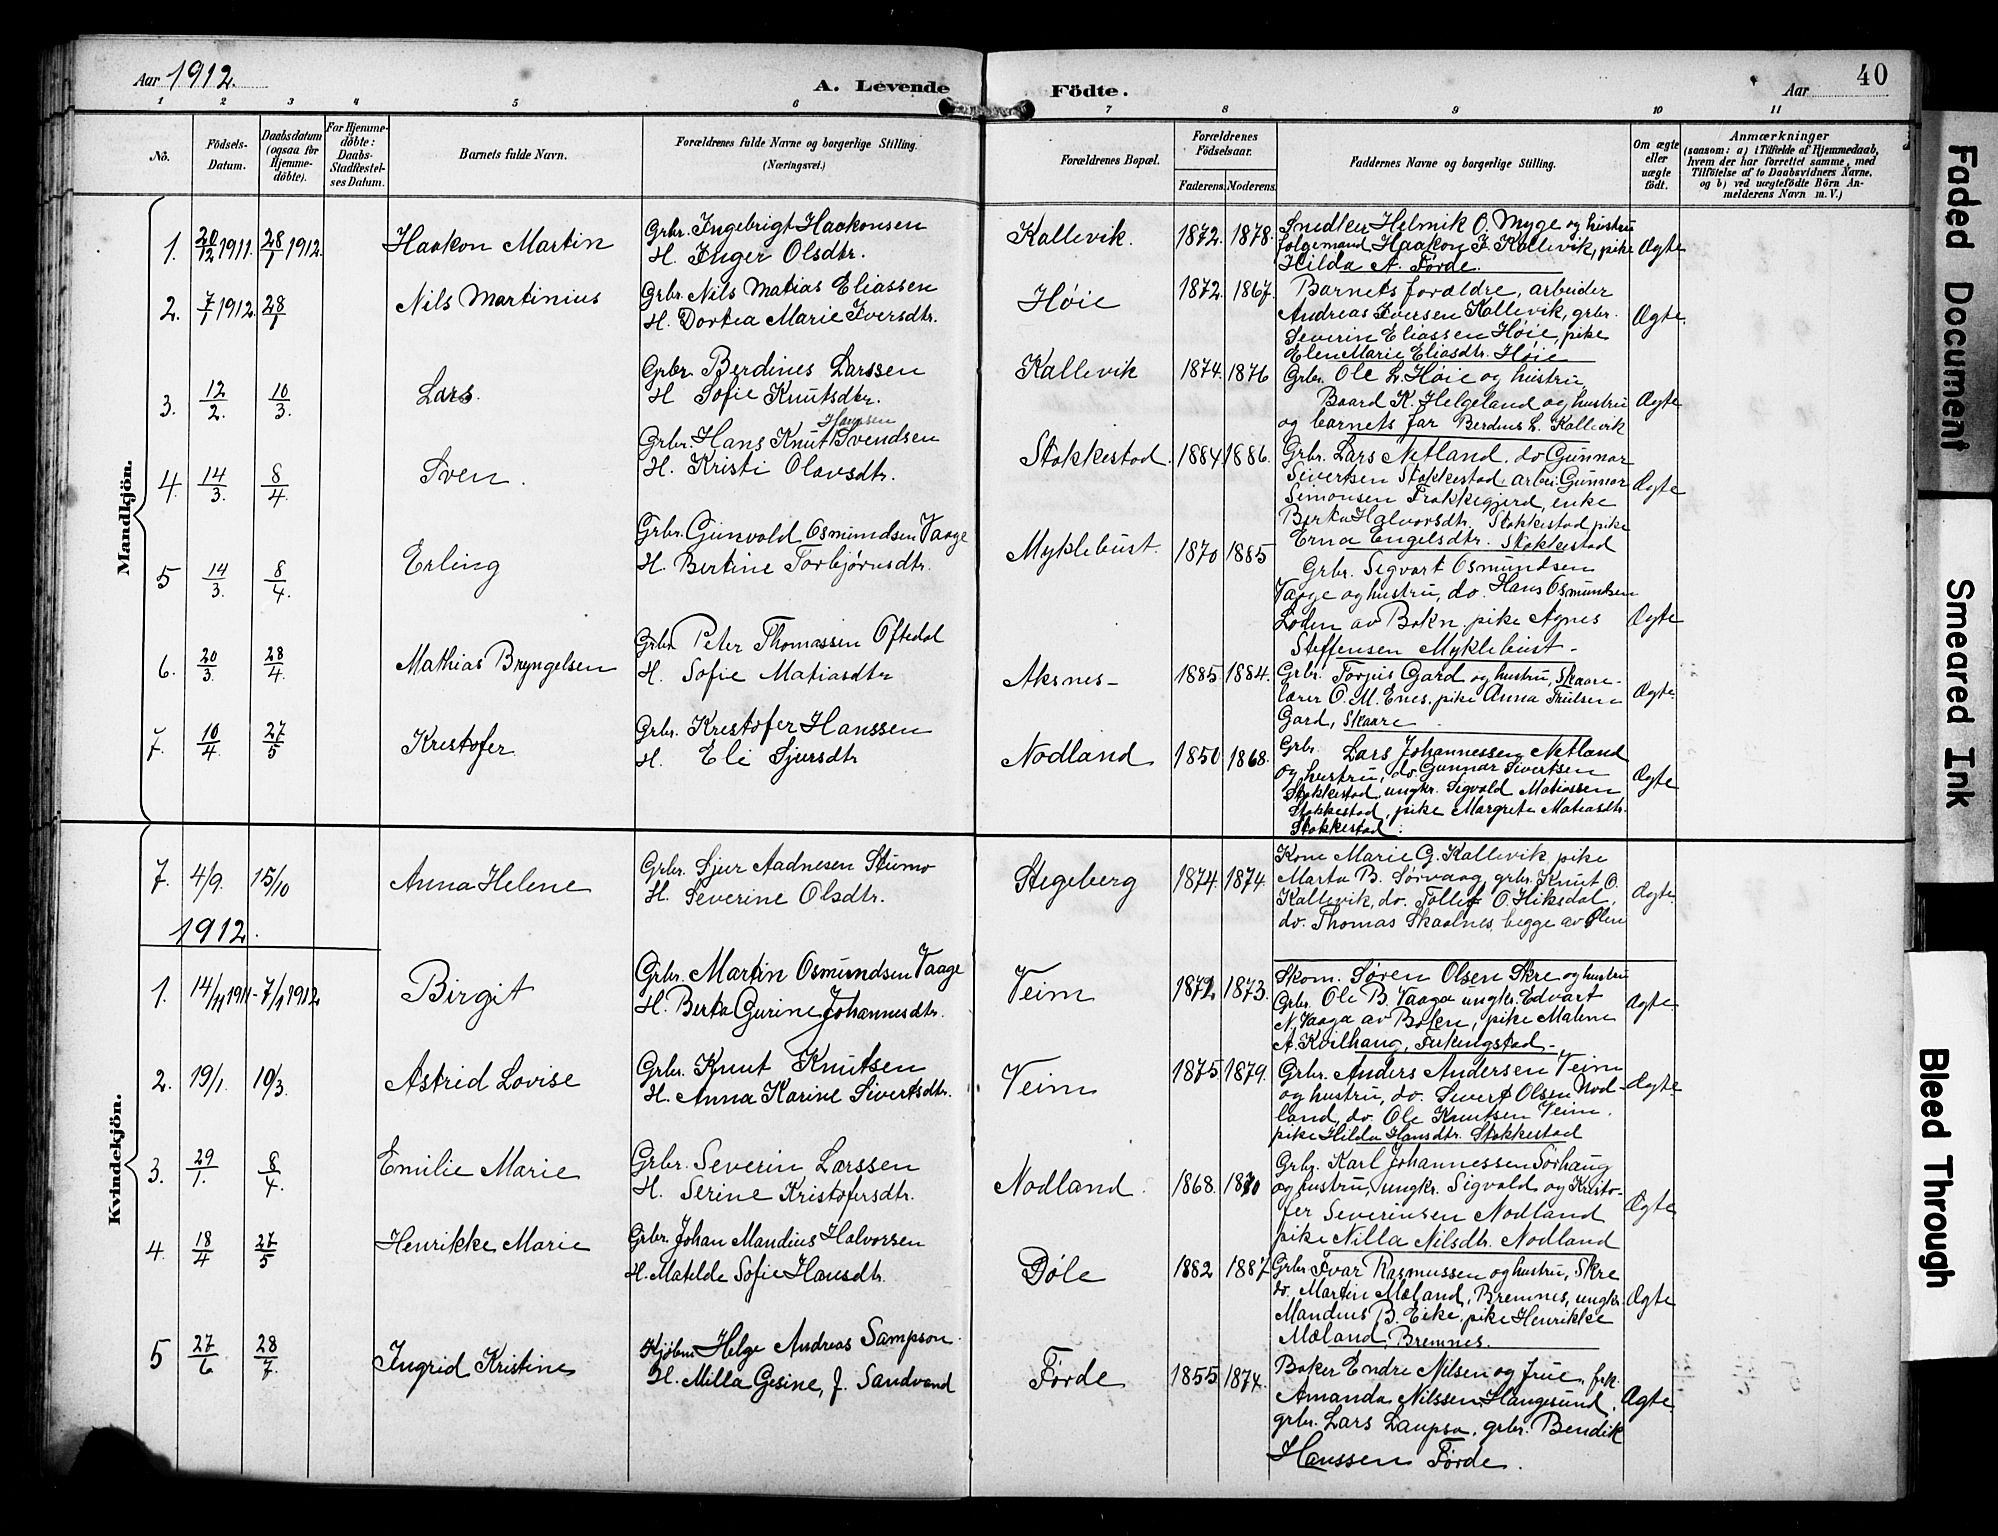 Aar 1912.
A. Levende Födte.
Aar
40
1 2 3 4 5 6 7 8 9 10 11
No.
Födsels-Datum.
Daabsdatum (ogsaa for Hjemme-döbte).
For Hjemme-döbte: Daabs-Stadfæstel-ses Datum.
Barnets fulde Navn.
Forældrenes fulde Navne og borgerlige Stilling.
(Næringsvei.)
Forældrenes Bopæl.
Forældrenes Födselsaar.
Faderens. Moderens.
Faddernes Navne og borgerlige Stilling.
Om ægte eller uægte födt.
Anmærkninger
(saasom: a) i Tilfælde af Hjemmedaab, hvem der har forrettet samme, med Tilföielse af to Daabsvidners Navne, og b) ved uægtefödte Börn An-melderens Navn m. V.)
Mandkjön.
1. 20/12 1911. 28/1 1912. Haakon Martin
Grbr. Ingebrigt Haakonsen
H. Inger Olsdtr.
Kallevik. 1872. 1878.
Snedker Helmik O. Myge og hustru
følgemand Haakon I. Kallevik, pike
Hilda A. Førde.
Ægte
2. 7/1 1912. 28/1 Nils Martinius
Grbr. Nils Matias Eliassen
H. Dortea Marie Iversdtr.
Høie 1872. 1867.
Barnets forældre, arbeider
Andreas Iversen Kallevik, grbr.
Severin Eliassen Høie, pike
Elen Marie Eliasdtr. Høie
Ægte.
3. 12/2. 10/3. Lars.
Grbr. Berdines Larssen
H Sofie Knutsdtr.
Kallevik 1874. 1876
Grbr. Ole L. Høie og hustru,
Baard K. Helgeland og hustru
og barnets far Berdins L. Kallevik
Ægte
4. 14/3. 8/4 Sven.
Hansen
Grbr. Hans Knut Svendsen
H. Kristi Olavsdtr.
Stokkestad. 1884. 1886.
Grbr. Lars Netland, do Gunnar
Sivertsen Stokkestad, arbei. Gunnar
Simonsen Frakkegjerd, enke
Berta Halvorsdtr. Stokkestad pike
Erna Engelsdtr. Stokkestad
Ægte
5 14/3. 8/4. Erling
Grbr. Gunvald Osmundsen Vaage
H. Bertine Torbjørnsdtr.
Myklebust. 1870 1885
Grbr. Sigvart Osmundsen
Vaage og hustru, do. Hans Osmundsen
Loden av Bokn, pike Agnes
Steffensen Myklebust.
Ægte
6. 20/3. 28/4. Mathias Bryngelsen
Grbr. Peter Thomassen Oftedal
H. Sofie Matiasdtr
Aksnes 1885 1884.
Grbr. Torjus Gard og hustru, Skaare
lærer O. M. Enes, pike Anna Gard, Skaare.
Ægte.
7. 10/4. 27/5 Krestofer.
Grbr. Krestofer Hanssen
H. Eli Sjursdtr
Nodland 1850. 1868.
Grbr. Lars Johannessen Netland
og hustru, do. Gunnar Sivertsen
Stokkestad, ungkr. Sigvald Matiassen
Stokkestad, pike Margrete Matiasdtr.
Stokkestad.
Ægte
Kvindekjön.
7. 4/9. 15/10 Anna Helene
Grbr. Sjur Aadnesen Stumo
H. Severine Olsdtr.
Stegeberg 1874. 1874.
Kone Marie G. Kallevik, pike
Marta B. Sørvaag, grbr. Knut O.
Kallevik, do. Tollef O. Hiksdal,
do. Thomas Skaalnes, begge av Ølen
Ægte.
1912.
1. 14/11 1911 7/1 1912 Birgit
Grbr. Martin Osmundsen Vaage
H. Berta Gurine Johannesdtr.
Veim 1872 1873.
Skom. Søren Olsen Skre og hustru
Grbr. Ole B. Vaaga ungkr. Edvart
N. Vaaga av Bokn, pike Malene
A. Kvilhaug,
Ægte.
2. 19/1. 10/3. Astrid Lovise
Grbr. Knut Knutsen
H. Anna Karine Sivertsdtr.
Veim 1875. 1879.
Grbr. Anders Andersen Veim
og hustru, do. Sivert Olsen Nod-
land, do. Ole Knutsen Veim,
pike Hilda Hansdtr. Stokkestad
Ægte.
3. 29/1. 8/4. Emilie Marie
Grbr. Severin Larssen
H. Serine Kristofersdtr.
Nodland. 1868. 1870
Grbr. Karl Johannessen Sørhaug
og hustru, ungkr. Sigvald og Kristo-
fer Severinsen Nodland
pike Nilla Nilsdtr. Nodland
Ægte.
4. 18/4 27/5 Henrikke Marie
Grbr. Johan Mandius Halvorsen
H. Matilde Sofie Hansdtr.
Døle 1882 1887
Grbr. Ivar Rasmussen og hustru, Skre
do. Martin Mæland, Bremnes, ungkr.
Mandius B. Eike, pike Henrikke
Mæland, Bremnes.
Ægte
5 27/6 28/7. Ingrid Kristine
Kjøbm Helge Andreas Sampson.
H. Milla Gesine, f. Sandvand
Førde 1855 1874.
Baker Endre Nilsen og frue, frk.
Amanda Nilssen, Haugesund,
grbr. Lars Laupsa, grbr. Bendik
Hanssen Førde.
Ægte.
Faded Document
Smeared Ink
Bleed Through